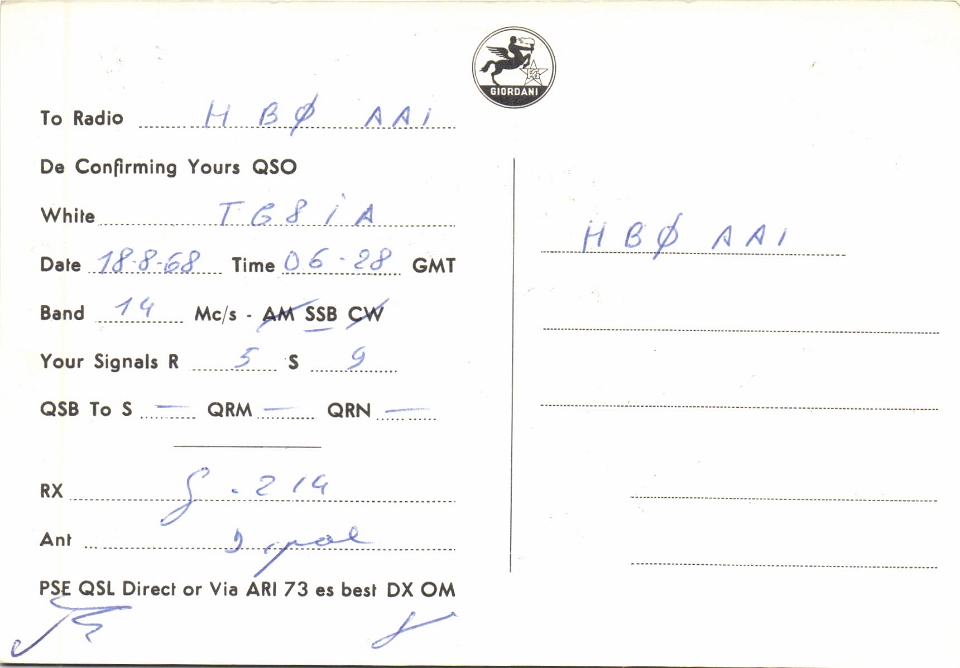 GIORDANI
To Radio HBØ AAI
De Confirming Yours QSO
White TG8IA
Date 18-8-68 Time 06-28 GMT
Band 14 Mc/s - AM SSB CW
Your Signals R 5 S 9
QSB To S — QRM — QRN —
RX G.214
Ant Dipol
PSE QSL Direct or Via ARI 73 es best DX OM
73
HBØ AAI